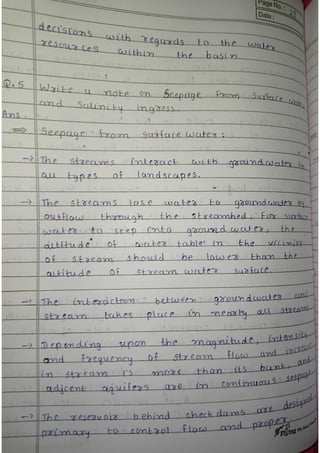 Page No.: 23
Date:
decisions with regards to the water
resources within the basin
Q.5 Write a note on Seepage from Surface
and Salinity ingress.
Ans.
⇒ Seepage from surface water:
→ The streams interact with groundwater in
all types of landscapes.
→ The streams lose water to groundwater by
outflow through the streambed. For surface
water to seep into ground water, the
altitude of water table in the vicinity
of stream should be lower than the
altitude of stream water surface.
→ The interaction between groundwater and
stream takes place in nearly all streams
→ Depending upon the magnitude, intensity
and frequency of stream flow and
in stream is more than its bank, and
adjcent aquifers are in continuous seepage
→ The reservoir behind check dams are designed
primary to control flow and proper